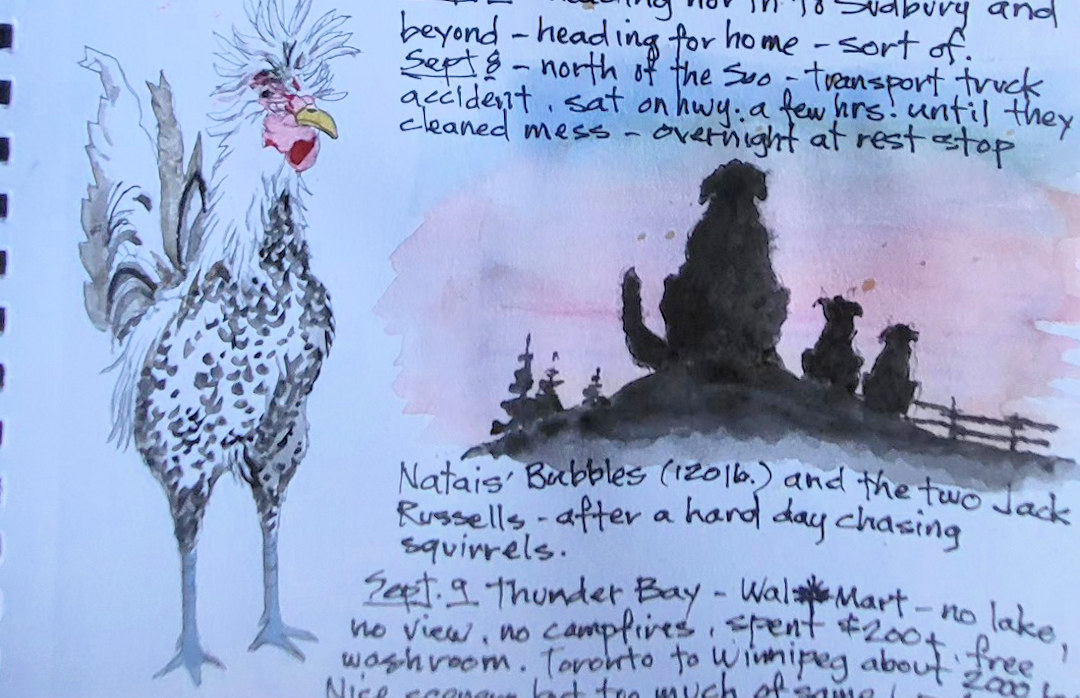 heading north to Sudbury and
beyond - heading for home - sort of.
Sept 8 - north of the Soo - transport truck
accident. sat on hwy. a few hrs. until they
cleaned mess - overnight at rest stop
Natais' Bubbles (120 lb.) and the two Jack
Russells - after a hard day chasing
squirrels.
Sept. 9 Thunder Bay - Wal Mart - no lake,
no view, no campfires, spent $200+, free
washroom. Toronto to Winnipeg about 2000
Nice but too much of same